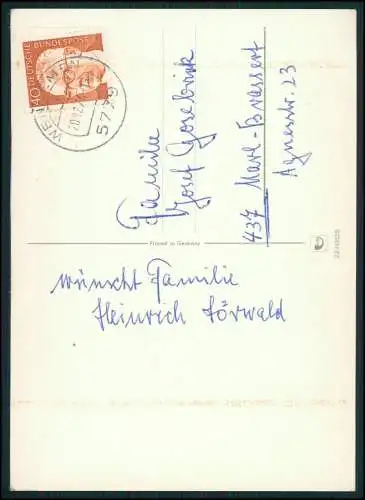 DEUTSCHE BUNDESPOST
40
5779
Familie
Josef Gosebrink
437 Marl-Brassert
Agnesstr. 23
Printed in Germany
wünscht Familie
Heinrich Hörwald